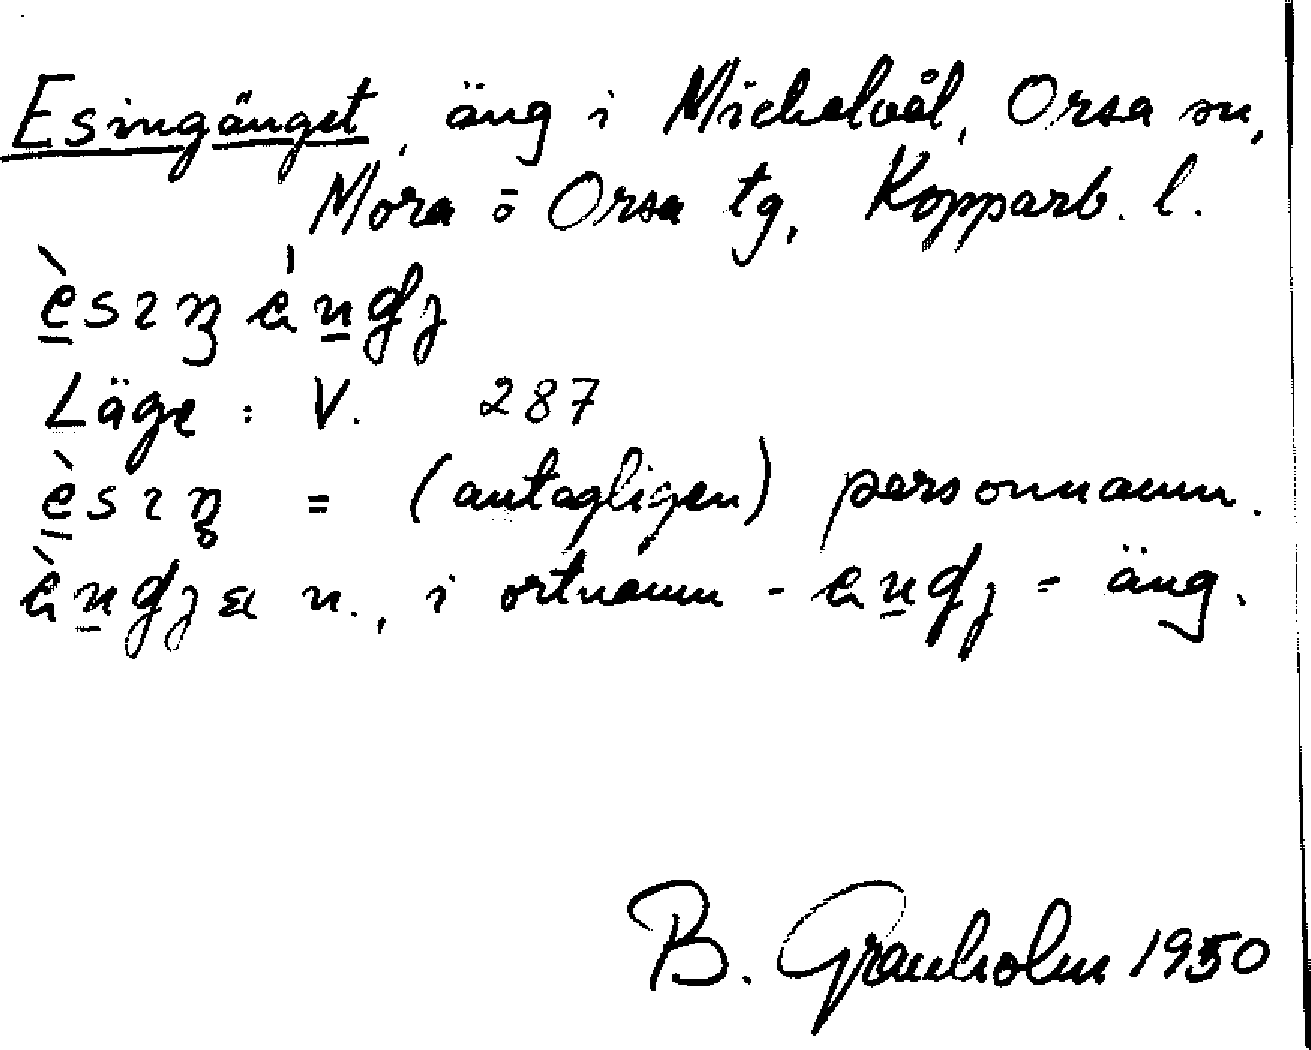 Esingänget, äng i Mickelvål, Orsa sn,
Mora o Orsa tg, Kopparb. l.
Läge: V. 287
= (antagligen) personnamn.
n., i ortnamn - = äng.
B. Granholm 1950